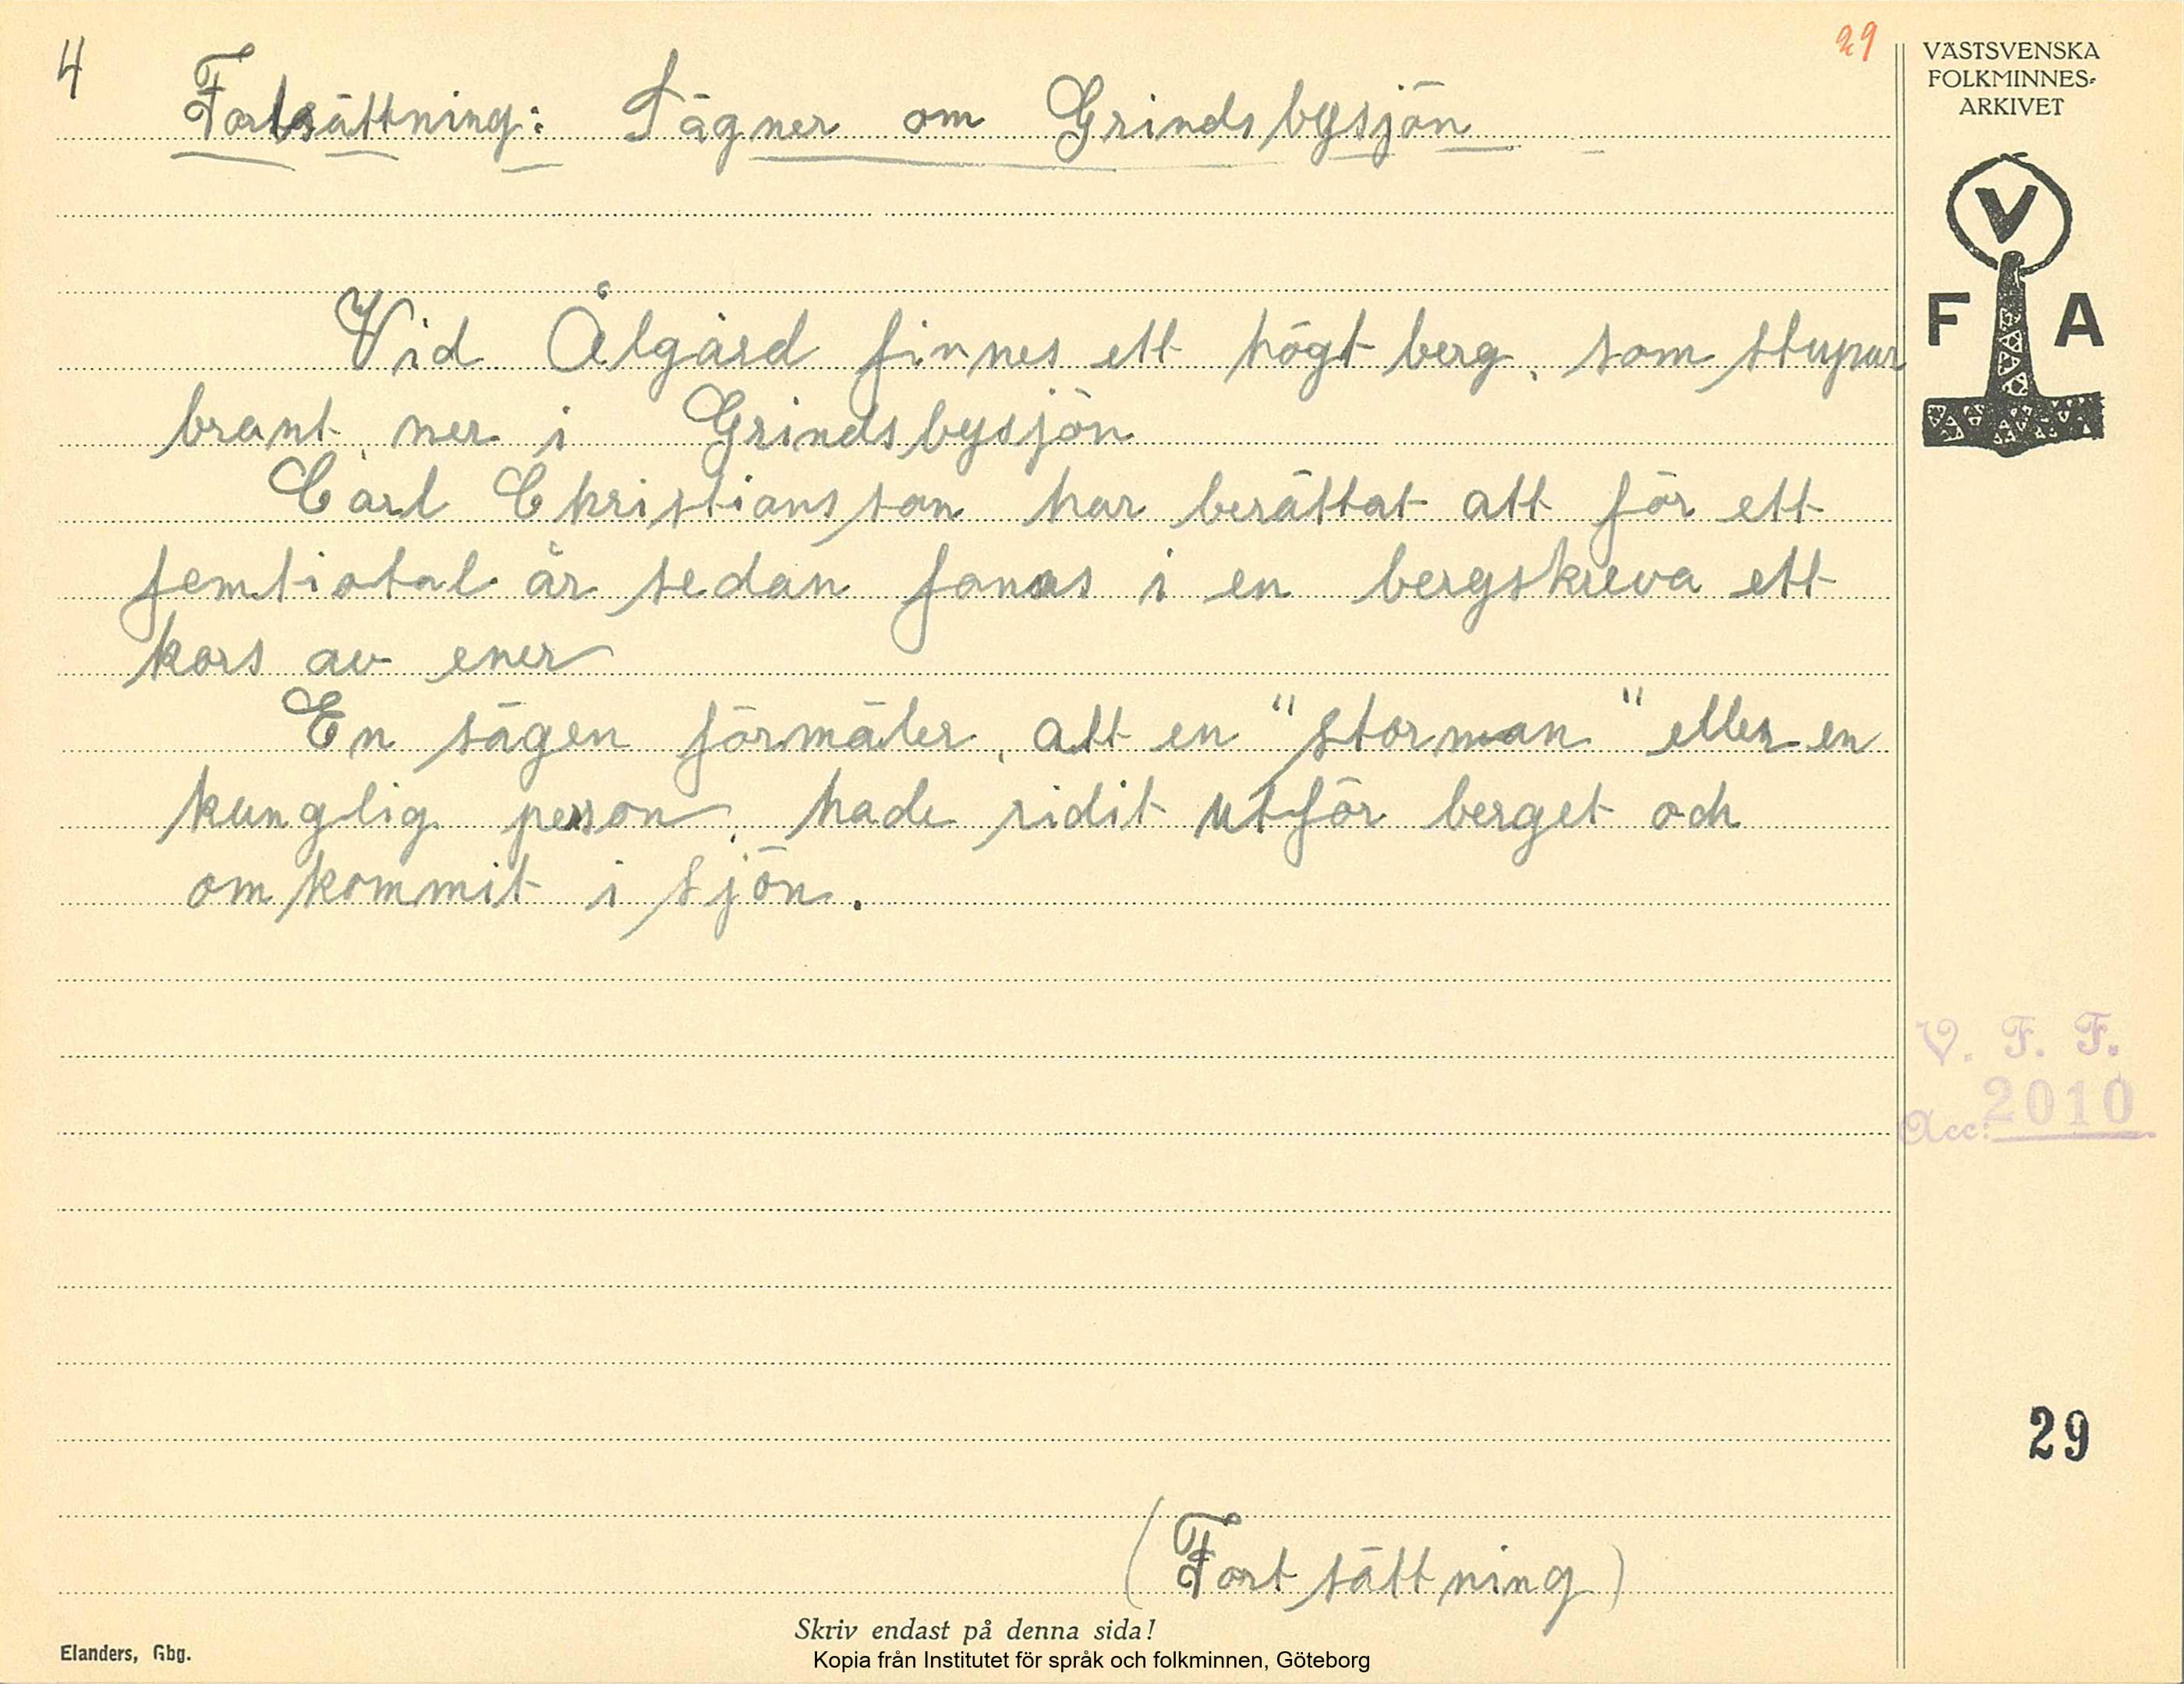 4
29
Fortsättning: Sägner om Grindsbysjön
Vid Ålgård finnes ett högt berg, som stupar
brant, ner i Grindsbysjön
Carl Christiansson har berättat att för ett
femtiotal år sedan fanns i en bergskreva ett
kors av ener
En sägen förmäler, att en "storman" eller en
kunglig person, hade ridit utför berget och
omkommit i sjön.
(Fortsättning)
Skriv endast på denna sida!
Elanders, Gbg.
Kopia från Institutet för språk och folkminnen, Göteborg
VÄSTSVENSKA
FOLKMINNES-
ARKIVET
V
F A
V. F. F.
Acc: 2010
29